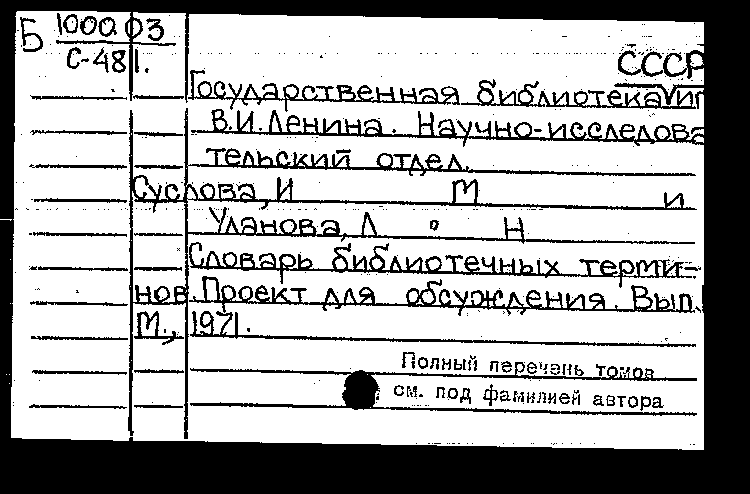 Б 1000 03
С-481.
СССР
Государственная библиотека им
В.И.Ленина. Научно-исследова
тельский отдел.
Суслова, И М и
Уланова, Л. Н
Словарь библиотечных терми-
нов. Проект для обсуждения. Вып.
М., 1971.
Полный перечень томов
см. под фамилией автора